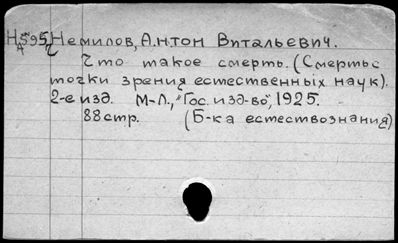 Н595 Немилов, Антон Витальевич.
Ч
Что такое смерть. (Смерть с
точки зрения естественных наук).
2-е изд. М-Л., "Гос. изд-во", 1925.
88 стр. (Б-ка естествознания)